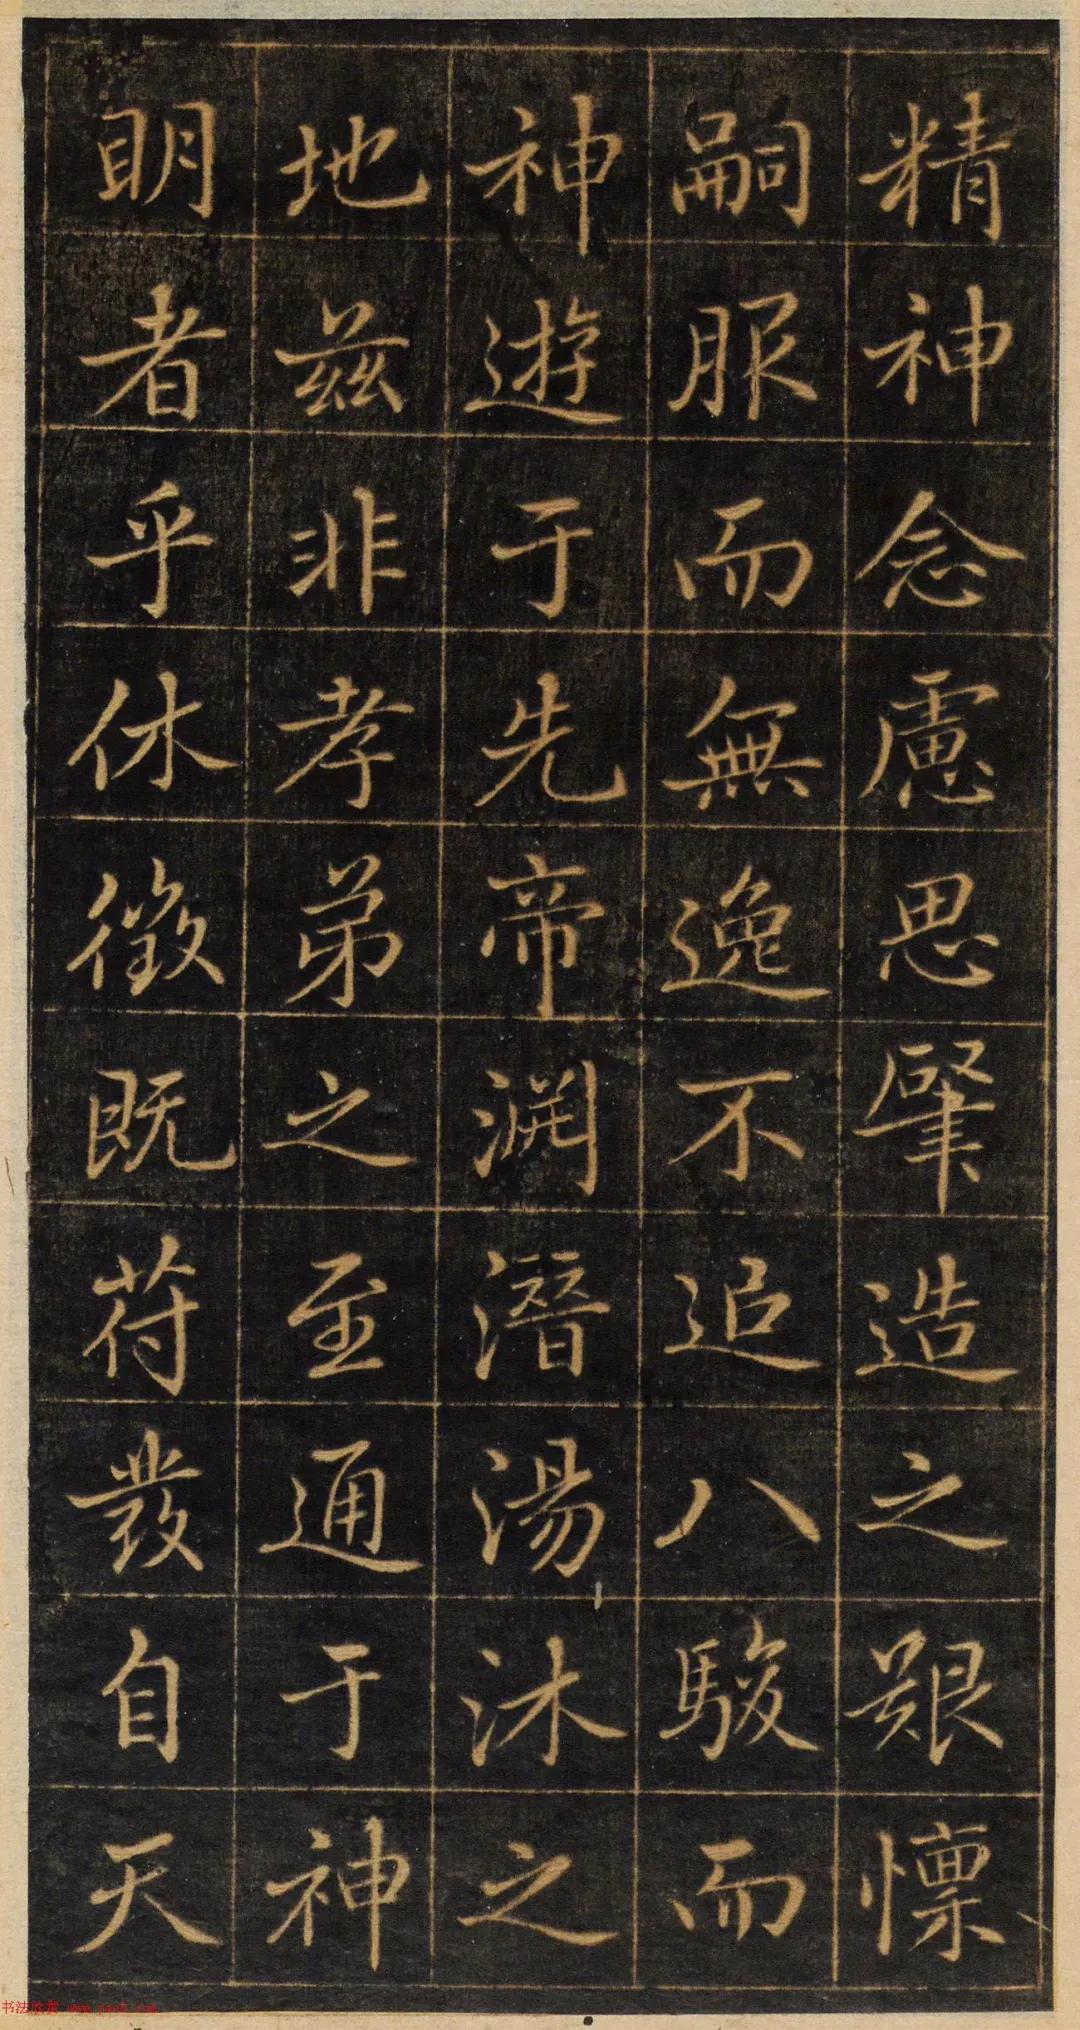 精神念慮思肇造之艱懍
嗣服而無逸不追八駿而
神遊于先帝淵潛湯沐之
地茲非孝弟之至通于神
明者乎休徵既苻發自天
书法欣赏